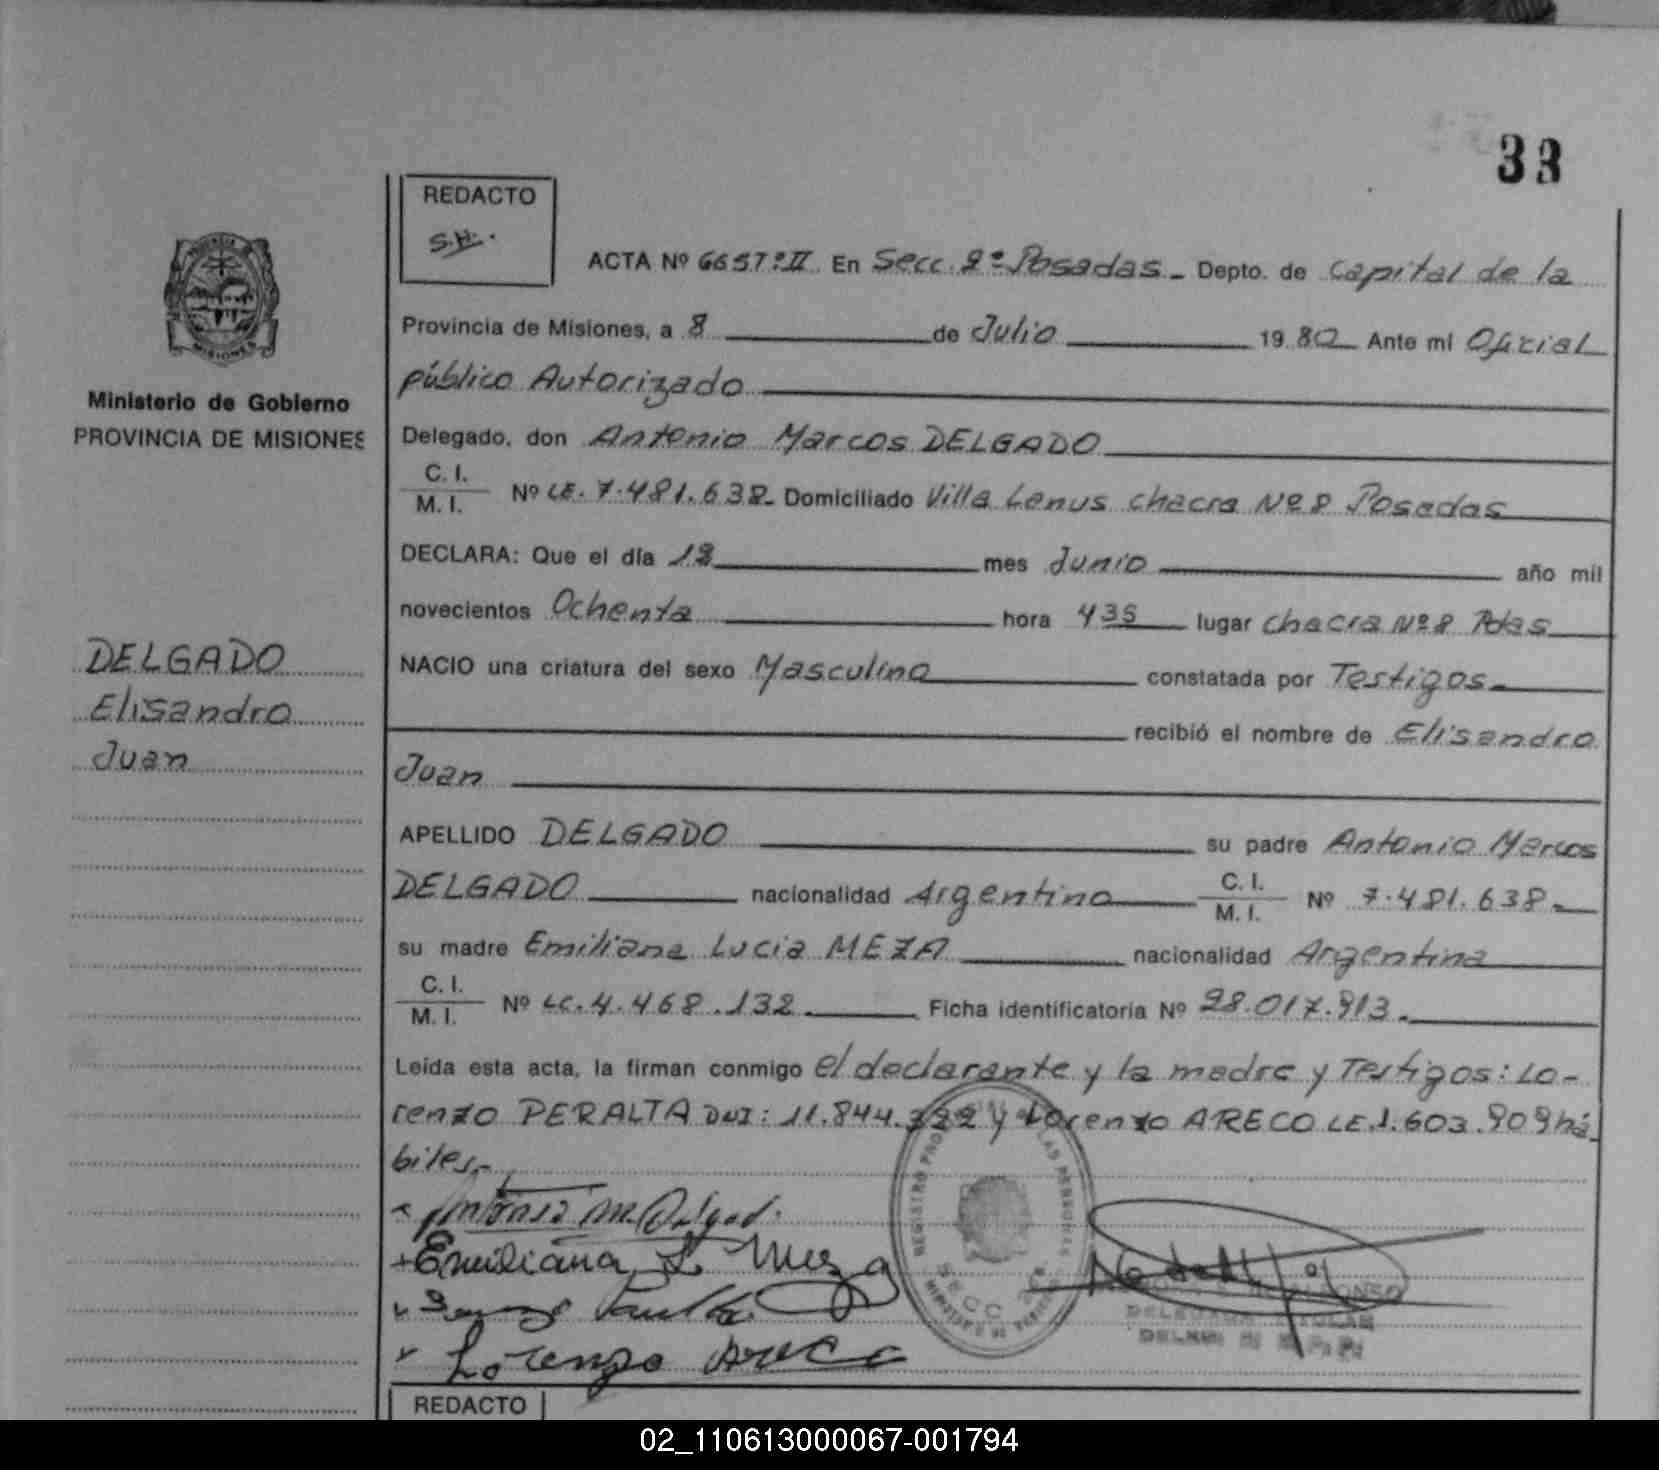 33
REDACTO
S.H.
ACTA Nº 6657º II En Secc. 2º Posadas Depto. de Capital de la
Provincia de Misiones, a 8 de Julio 1980 Ante mi Oficial
público Autorizado
Ministerio de Gobierno
PROVINCIA DE MISIONES
Delegado, don Antonio Marcos DELGADO
C. I.
M. I. Nº LE. 7.481.638 Domiciliado Villa Lanus chacra Nº 8 Posadas
DECLARA: Que el día mes Junio año mil
novecientos Ochenta hora 435 lugar chacra Nº 8 Pdas
DELGADO
Elisandro
Juan
NACIO una criatura del sexo Masculino constatada por Testigos
recibió el nombre de Elisandro
Juan
APELLIDO DELGADO su padre Antonio Marcos
DELGADO nacionalidad Argentina C. I. M. I. Nº 7.481.638
su madre Emiliana Lucia MEZA nacionalidad Argentina
C. I.
M. I. Nº LC. 4.468.132 Ficha identificatoria Nº
Leída esta acta, la firman conmigo el declarante y la madre y Testigos: Lo-
renzo PERALTA DNI: y Lorenzo ARECO LE. há
biles.
Antonio M. Delgad.
Emiliana L Meza
Lorenzo Areco
REGISTRO SECC
DELEGADA TITULAR
REDACTO
02_110613000067-001794